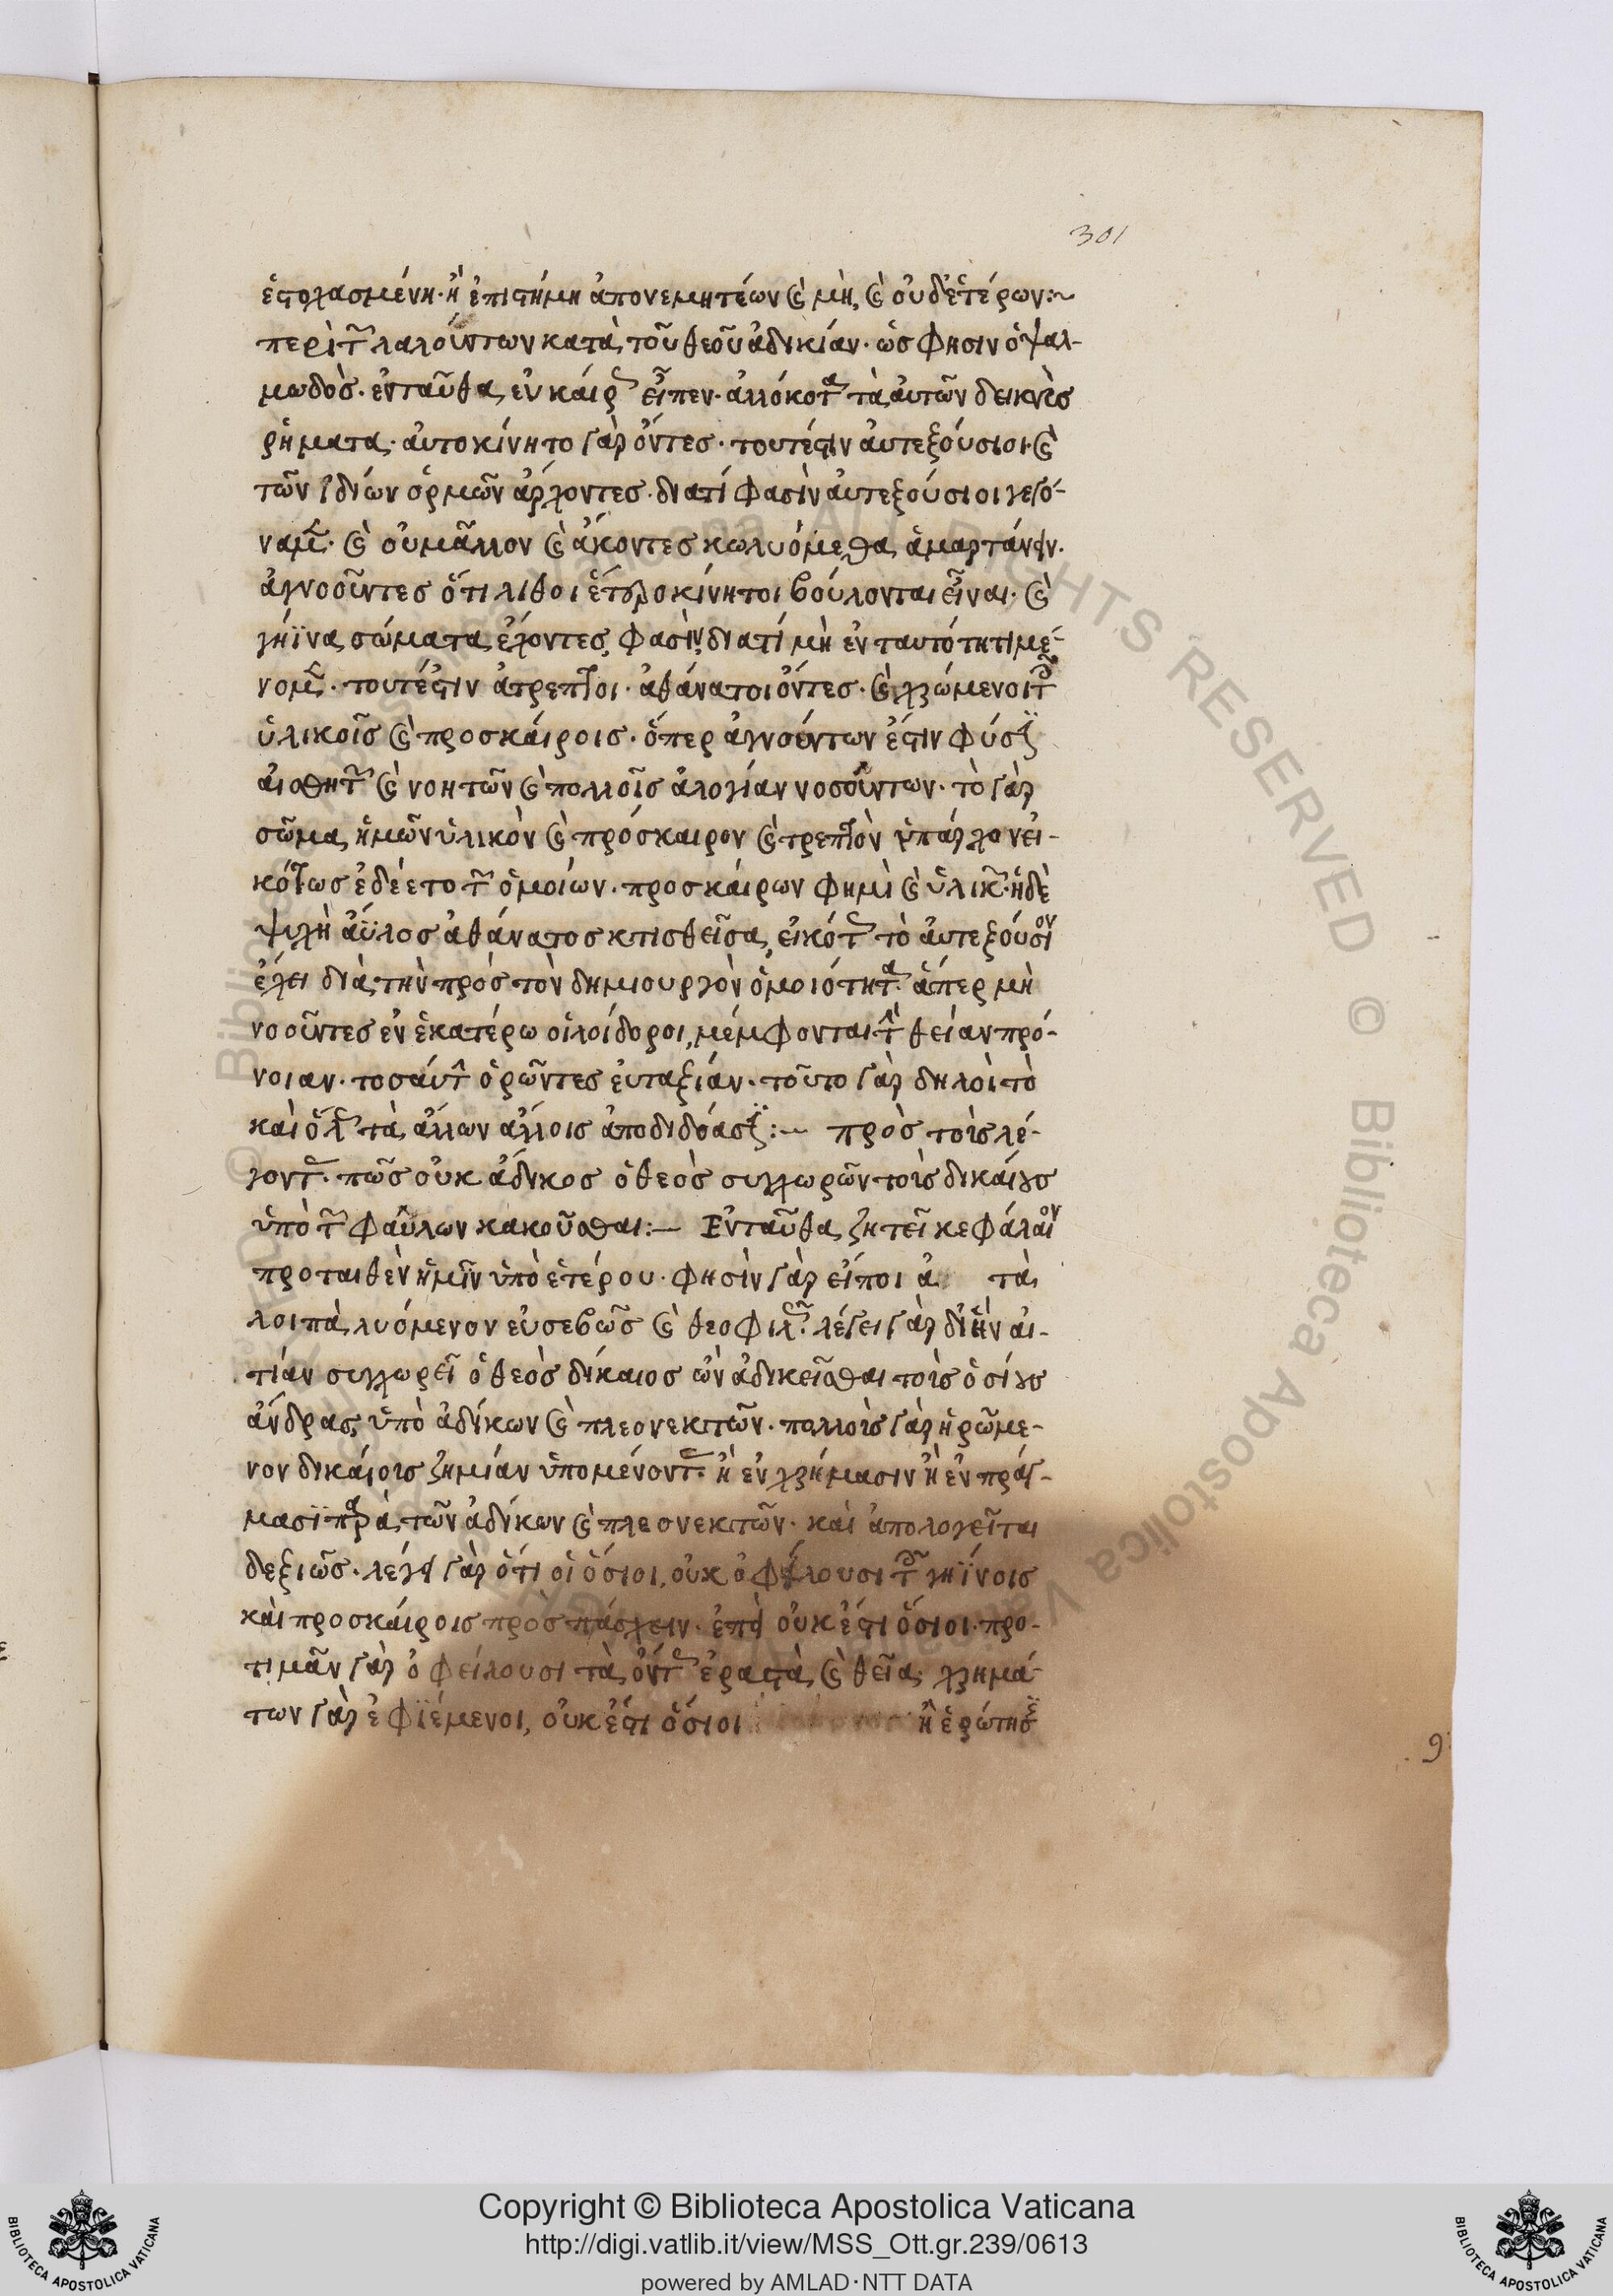 301
ἐστοχασμένη· ἢ ἐπιστήμη ἀπονεμητέων καὶ μὴ, καὶ οὐδετέρων:~
περὶ τῶν λαλούντων κατὰ τοῦ θεοῦ ἀδικίαν· ὡς φησιν ὁ ψαλ-
μωδὸς· ἐνταῦθα ἐν καιρῶ εἶπεν· ἀλλόκοτα τὰ αὐτῶν δεικνὺς
ῥήματα· αὐτοκίνητο γὰρ ὄντες· τουτέστιν αὐτεξούσιοι· καὶ
τῶν ἰδίων ὁρμῶν ἄρχοντες· διατί φασὶν αὐτεξούσιοι γεγό-
ναμεν· καὶ οὐ μᾶλλον καὶ ἄκοντες κωλυόμεθα ἁμαρτάνειν·
ἀγνοοῦντες ὅτι λίθοι ἑτεροκίνητοι βούλονται εἶναι· καὶ
γήϊνα σώματα ἔχοντες, φασὶν, διατί μὴ ἐν ταυτότητι μέ-
νομεν· τουτέστιν ἄτρεπτοι· ἀθάνατοι ὄντες· καὶ χρώμενοι τοῖς
ὑλικοῖς καὶ προσκαίροις· ὅπερ ἀγνοούντων ἐστὶν φύσεις
αἰσθητῶν καὶ νοητῶν καὶ πολλοῖς ἀλογίαν νοσούντων· τὸ γὰρ
σῶμα ἡμῶν ὑλικὸν καὶ πρόσκαιρον καὶ τρεπτὸν ὑπάρχον εἰ-
κότως ἐδέετο τῶν ὁμοίων· προσκαίρων φημὶ καὶ ὑλικῶν· ἡ δὲ
ψυχὴ ἄϋλος ἀθάνατος κτισθεῖσα, εἰκότως τὸ αὐτεξούσιον
ἔχει διὰ τὴν πρὸς τὸν δημιουργὸν ὁμοιότητα· ἅπερ μὴ
νοοῦντες ἐν ἑκατέρω οἱ λοίδοροι, μέμφονται τὴν θείαν πρό-
νοιαν· τοσαύτην ὁρῶντες εὐταξίαν· τοῦτο γὰρ δηλοὶ τὸ
καὶ ὅλως τὰ ἄλλων ἄλλοις ἀποδιδόασιν:— πρὸς τοὺς λέ-
γοντας· πῶς οὐκ ἄδικος ὁ θεὸς συγχωρῶν τοὺς δικαίους
ὑπὸ τῶν φαύλων κακοῦσθαι:— Ἐνταῦθα ζητεῖ κεφάλαιον
προταθὲν ἡμῖν ὑπὸ ἑτέρου· φησὶν γὰρ εἴποι τὰ
λοιπὰ, λυόμενον εὐσεβῶς καὶ θεοφιλῶς· λέγει γὰρ δι ἣν αἰ-
τίαν συγχωρεῖ ὁ θεὸς δίκαιος ὢν ἀδικεῖσθαι τοὺς ὁσίους
ἄνδρας ὑπὸ ἀδίκων καὶ πλεονεκτῶν· πολλοὺς γὰρ ὁρῶμε-
νον δικαίοις ζημίαν ὑπομένοντας· ἢ ἐν χρήμασιν ἢ ἐν πράγ-
μασϊ παρὰ τῶν ἀδίκων καὶ πλεονεκτῶν· καὶ ἀπολογεῖται
δεξιῶς· λέγει γὰρ ὅτι οἱ ὅσιοι, οὐκ ὀφείλουσι τοῖς γηΐνοις
καὶ προσκαίροις προσπάσχειν· ἐπεὶ οὐκ ἔτι ὅσιοι· προ-
τιμᾶν γὰρ ὀφείλουσι τὰ ὄντως ἐραστὰ, καὶ θεῖα· χρημά-
των γὰρ ἐφϊέμενοι, οὐκ ἔτι ὅσιοι ἢ ἐρώτησις
9
Copyright © Biblioteca Apostolica Vaticana
http://digi.vatlib.it/view/MSS_Ott.gr.239/0613
powered by AMLAD·NTT DATA
BIBLIOTECA APOSTOLICA VATICANA
BIBLIOTECA APOSTOLICA VATICANA